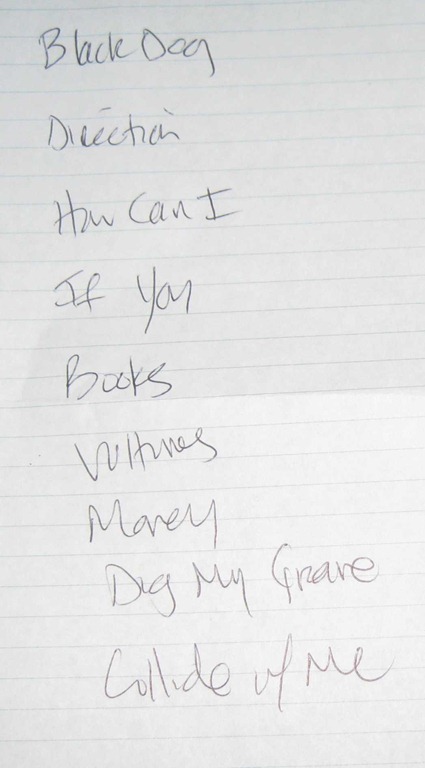 Black Dog
Direction
How Can I
If You
Books
Vultures
Money
Dig My Grave
Collide w/ Me